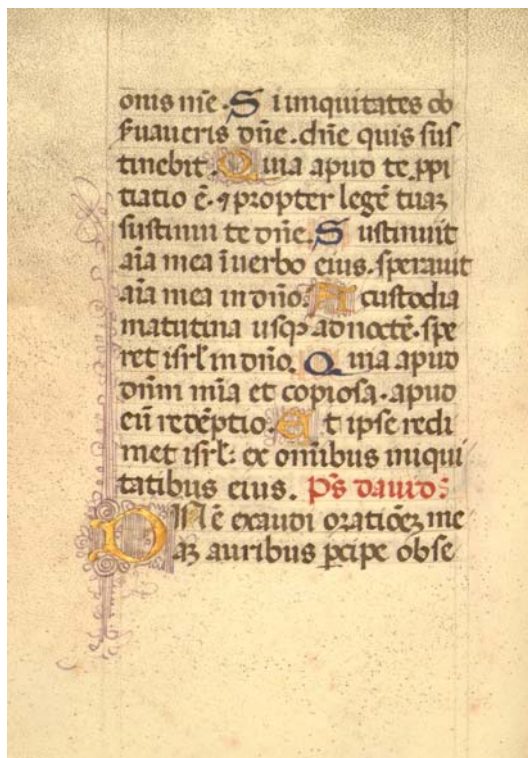 onis mē. Si iniquitates ob
ſuaueris dn̄e. dn̄e quis ſus
tinebit. Quia apud te ꝓpi
tiatio ē. ⁊ propter legē tuaꝫ
ſuſtinui te dn̄e. Suſtinuit
aīa mea ī uerbo eius. ſperauit
aīa mea in dn̄o. A cuſtodia
matutina uſqꝫ ad noctē. ſpe
ret iſrl̄ in dn̄o. Quia apud
dn̄m mīa et copioſa. apud
eū redēptio. Et ipſe redi
met iſrl̄: ex omībus iniqui
tatibus eius. Ps̄ dauid:
DNē exaudi oratiōeꝫ me
aꝫ auribus ꝑcipe obſe